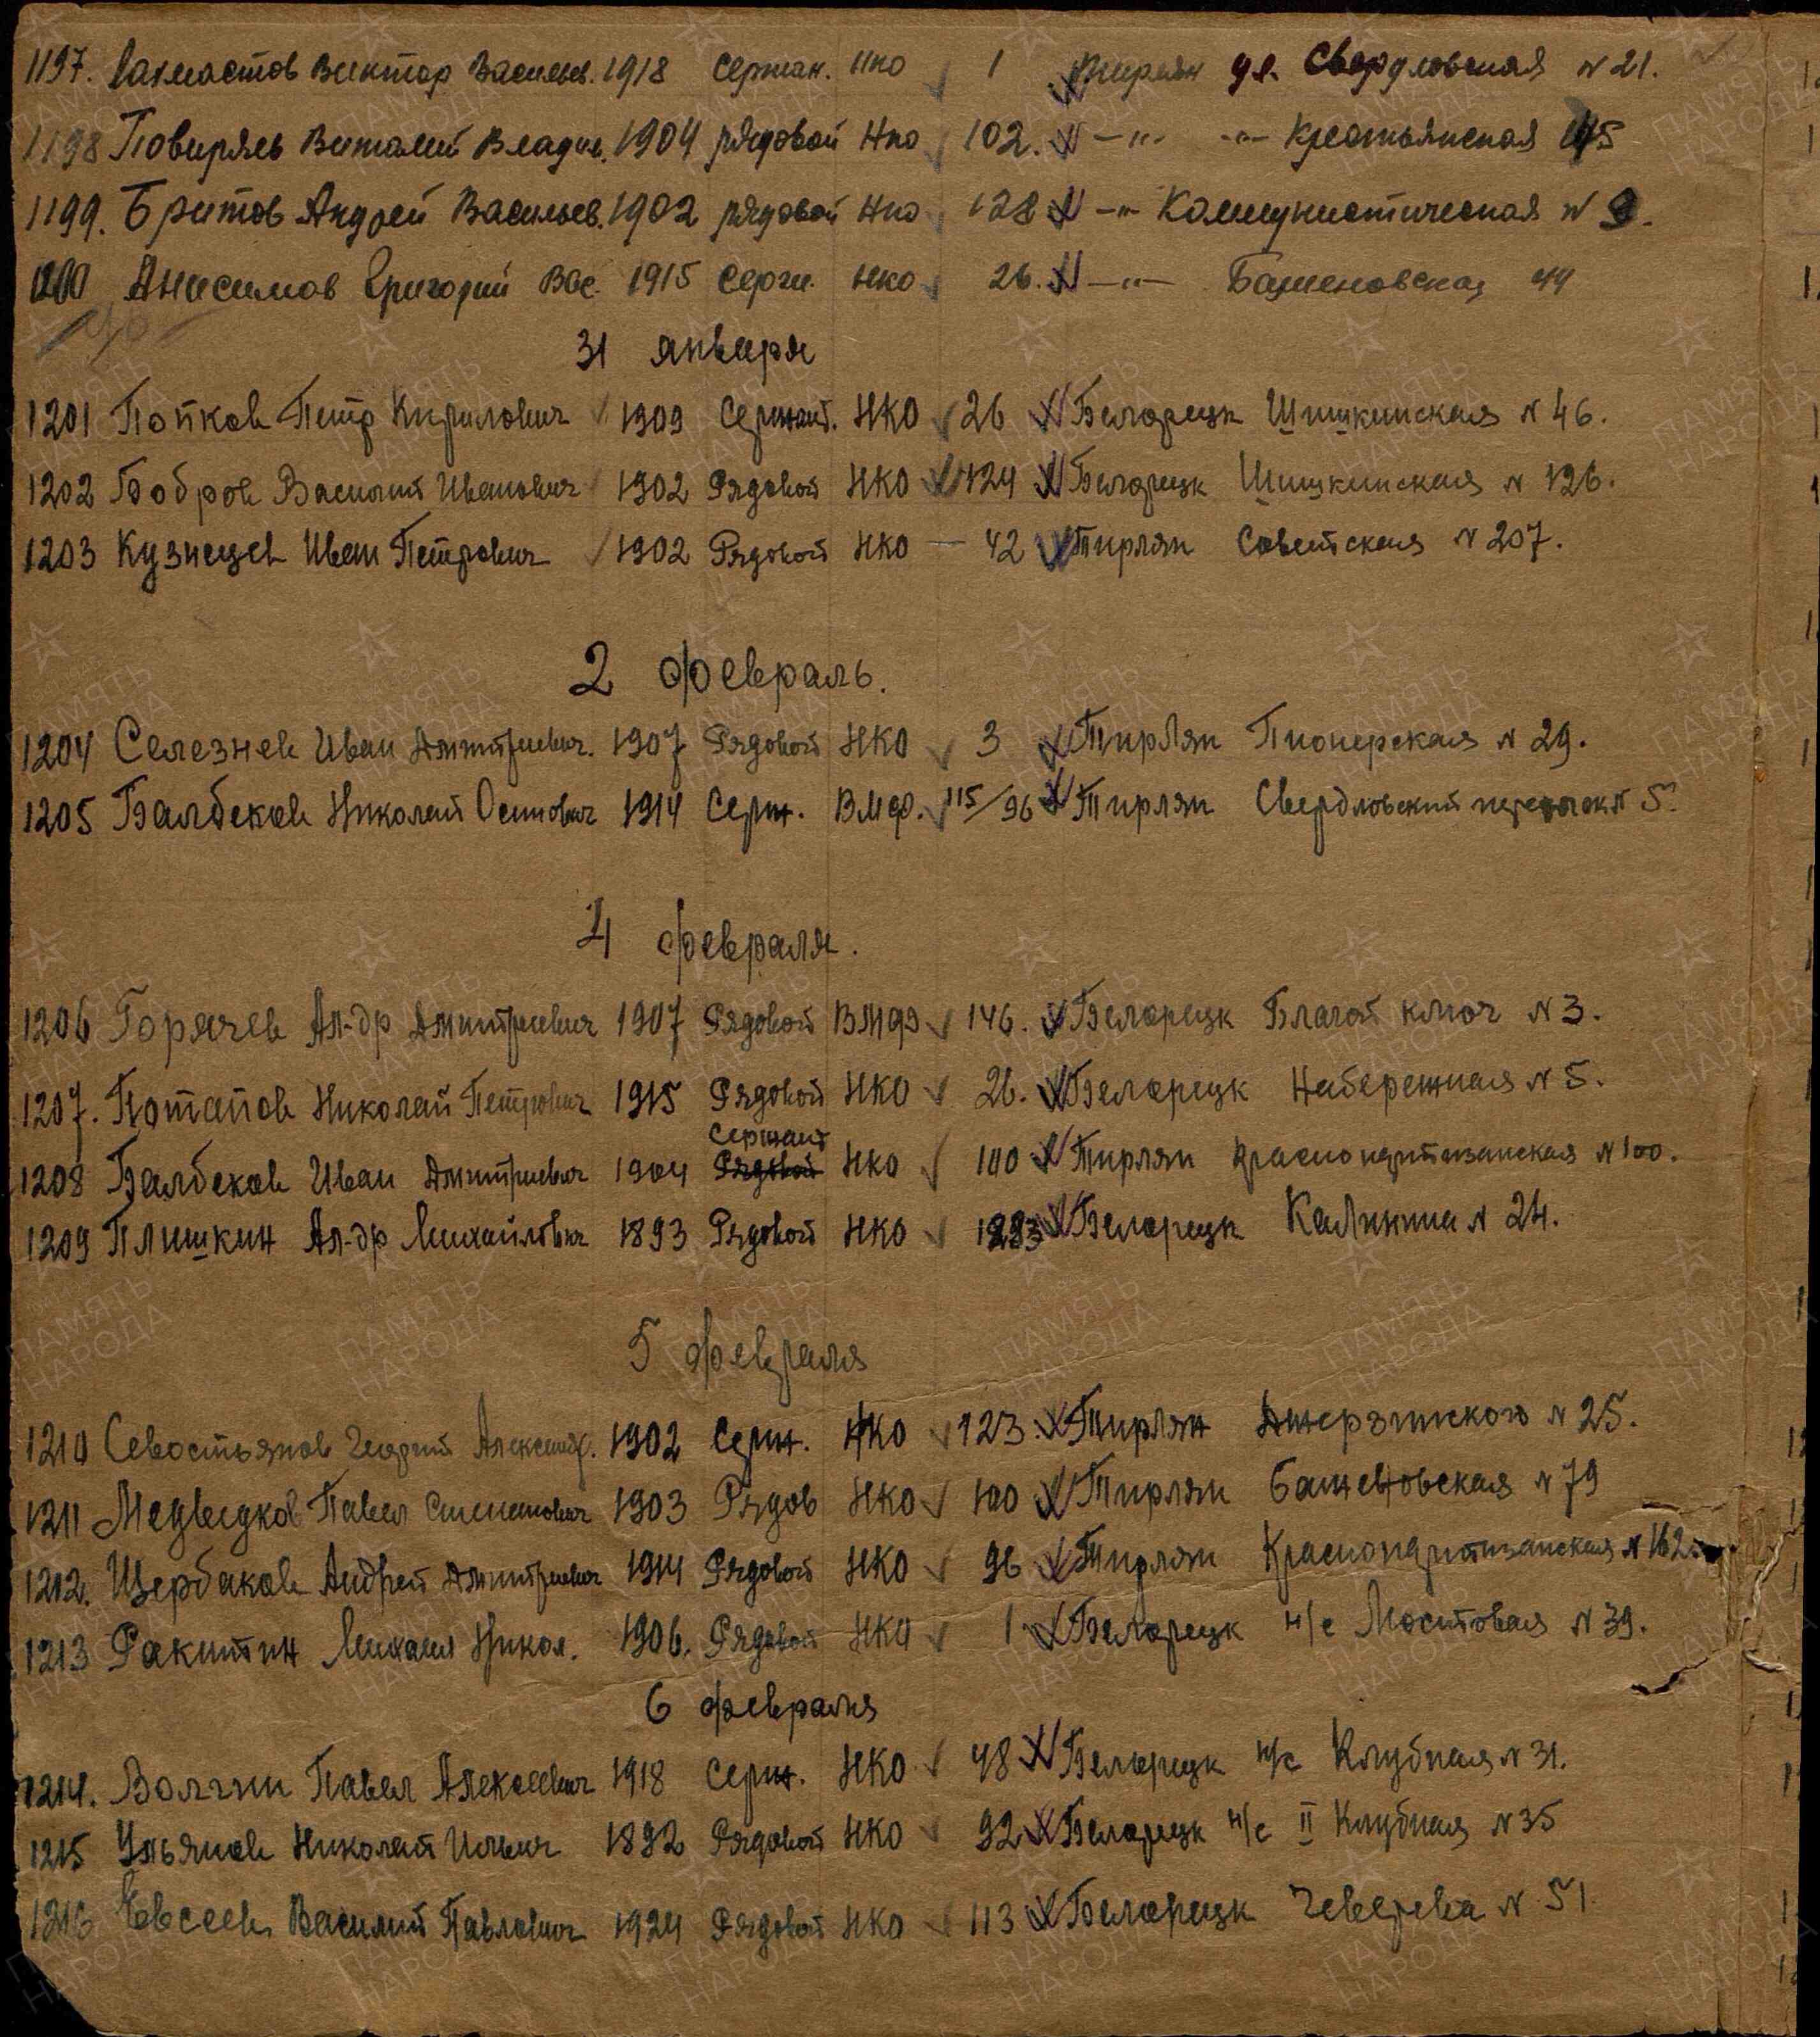 1197. Сахмастов Виктор Васильев. 1918 Сержан. Нко 1 Тирлян ул. Свердловская N 21.
1198 Повиряев Виталий Владим. 1904 рядовой Нко 102. —"— —"— Крестьянская
1199. Бритов Андрей Васильев. 1902 рядовой Нко 128 —"— Коммунистическая N 9.
1200 Анисимов Григорий Вас. 1915 Серж. Нко 26. —"— Баженовская 44
31 января
1201 Попков Петр Кирилович 1909 Сержант. НКО 26 Белорецк Шишкинская N 46.
1202 Бобров Василий Иванович 1902 Рядовой НКО 124 Белорецк Шишкинская N 126.
1203 Кузнецев Иван Петрович 1902 Рядовой НКО — 42 Тирлян Советская N 207.
2 февраль.
1204 Селезнев Иван Дмитриевич. 1907 Рядовой НКО 3 Тирлян Пионерская N 29.
1205 Балбеков Николай Осипович 1914 Серж. Вмф. 115/96 Тирлян Свердловский N 5.
4 февраля.
1206 Горячев Ал-др Дмитриевич 1907 Рядовой ВМФ 146. Белорецк Благой ключ N 3.
1207. Потапов Николай Петрович 1915 Рядовой НКО 26. Белорецк Набережная N 5.
Сержант
1208 Балбеков Иван Дмитриевич 1904 Рядовой НКО 100 Тирлян Краснопартизанская N 100.
1209 Плишкин Ал-др Михайлович 1893 Рядовой НКО Белорецк Калинина N 24.
5 февраля
1210 Севостьянов Георгий Александ. 1902 Серж. НКО 123. Тирлян Джерзинского N 25.
1211 Медведков Павел Степанович 1903 Рядов НКО 100 Тирлян Баженовская N 79
1212. Щербаков Андрей Дмитриевич 1914 Рядовой НКО 96 Тирлян Краснопартизанская N 162.
1213 Ракитин Михаил Никол. 1906. Рядовой НКО 1. Белорецк н/с Мостовая N 39.
6 февраля
1214. Волгин Павел Алексеевич 1918 Серж. НКО 48 Белорецк н/с Клубная N 31.
1215 Ульянов Николай Ильич 1892 Рядовой НКО 92 Белорецк н/с II Клубная N 35
1216 Евсеев Василий Павлович 1924 Рядовой НКО 113 Белорецк Чеверева N 51